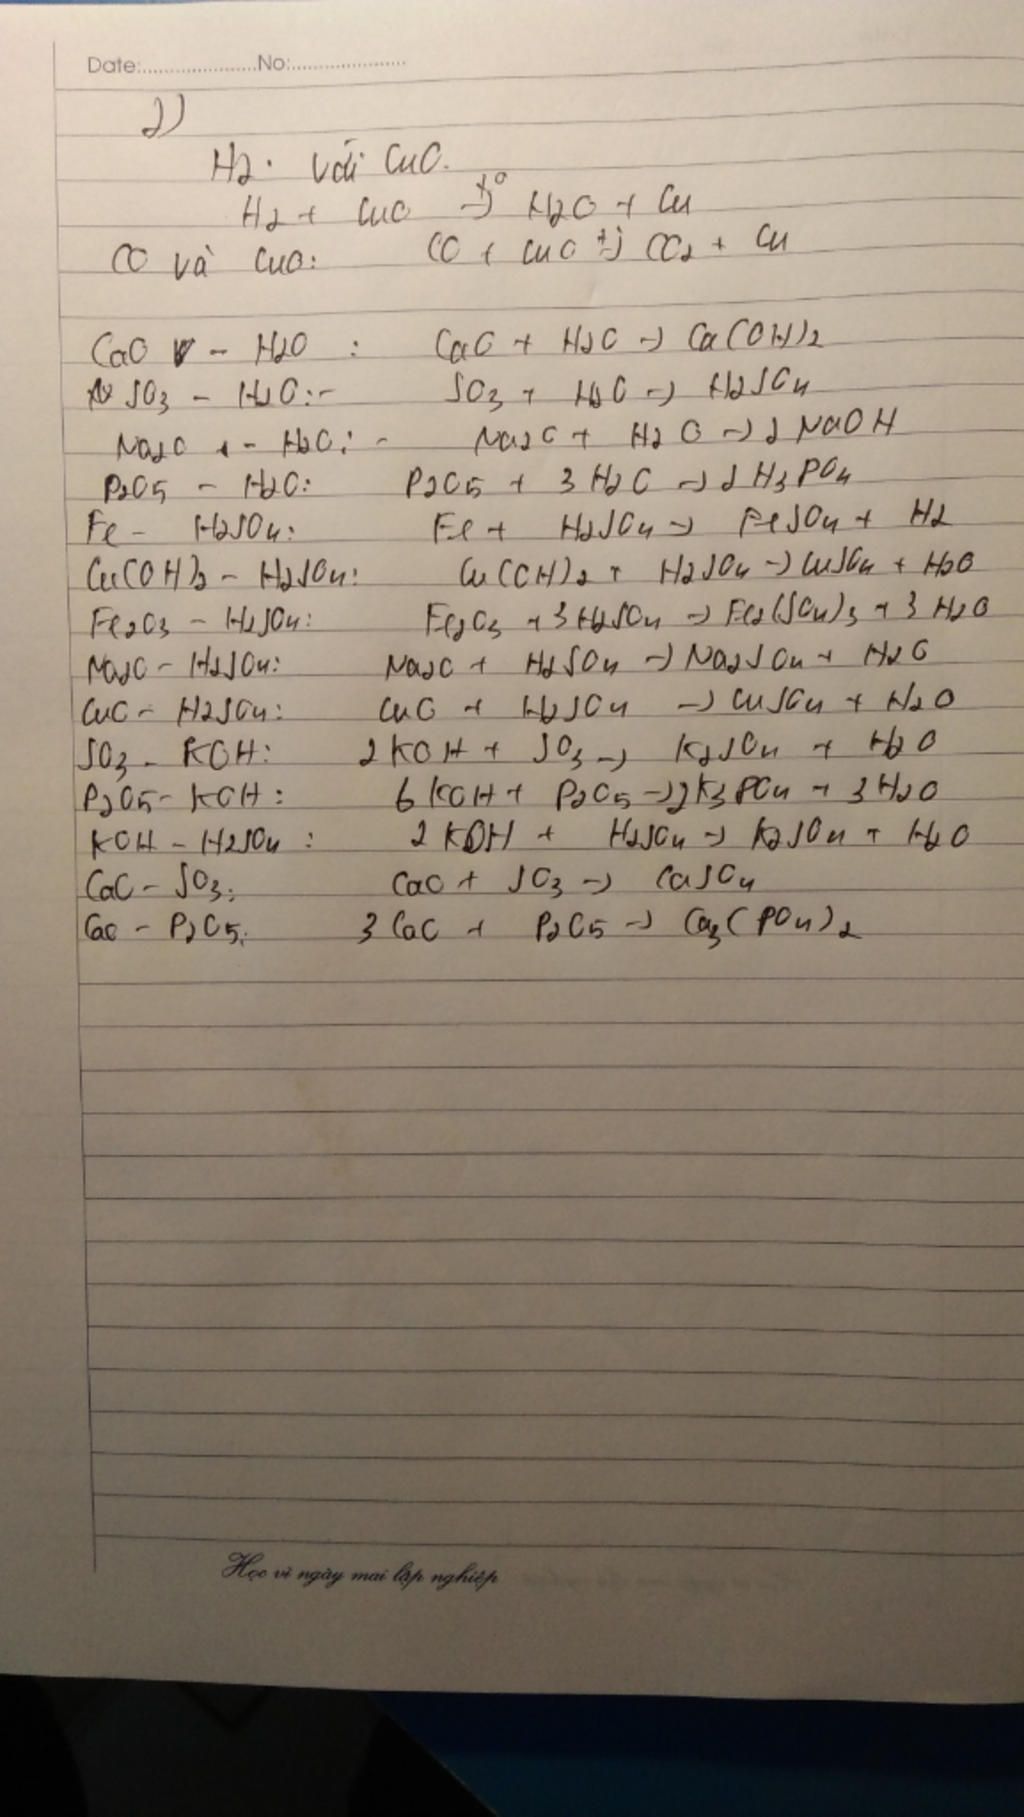 Date:.....................No:.....................
2)
H2. với CuO.
H2 + CuO →t° H2O + Cu
CO và CuO: CO + CuO →t° CO2 + Cu
CaO - H2O : CaO + H2O → Ca(OH)2
SO3 - H2O:- SO3 + H2O → H2SO4
Na2O - H2O: - Na2O + H2O → 2 NaOH
P2O5 - H2O: P2O5 + 3 H2O → 2 H3PO4
Fe - H2SO4: Fe + H2SO4 → FeSO4 + H2
Cu(OH)2 - H2SO4: Cu(OH)2 + H2SO4 → CuSO4 + H2O
Fe2O3 - H2SO4: Fe2O3 + 3H2SO4 → Fe2(SO4)3 + 3 H2O
Na2O - H2SO4: Na2O + H2SO4 → Na2SO4 + H2O
CuO - H2SO4: CuO + H2SO4 → CuSO4 + H2O
SO3 - KOH: 2 KOH + SO3 → K2SO4 + H2O
P2O5 - KOH: 6 KOH + P2O5 → 2K3PO4 + 3 H2O
KOH - H2SO4 : 2 KOH + H2SO4 → K2SO4 + H2O
CaO - SO3: CaO + SO3 → CaSO4
CaO - P2O5: 3 CaO + P2O5 → Ca3(PO4)2
Học vì ngày mai lập nghiệp